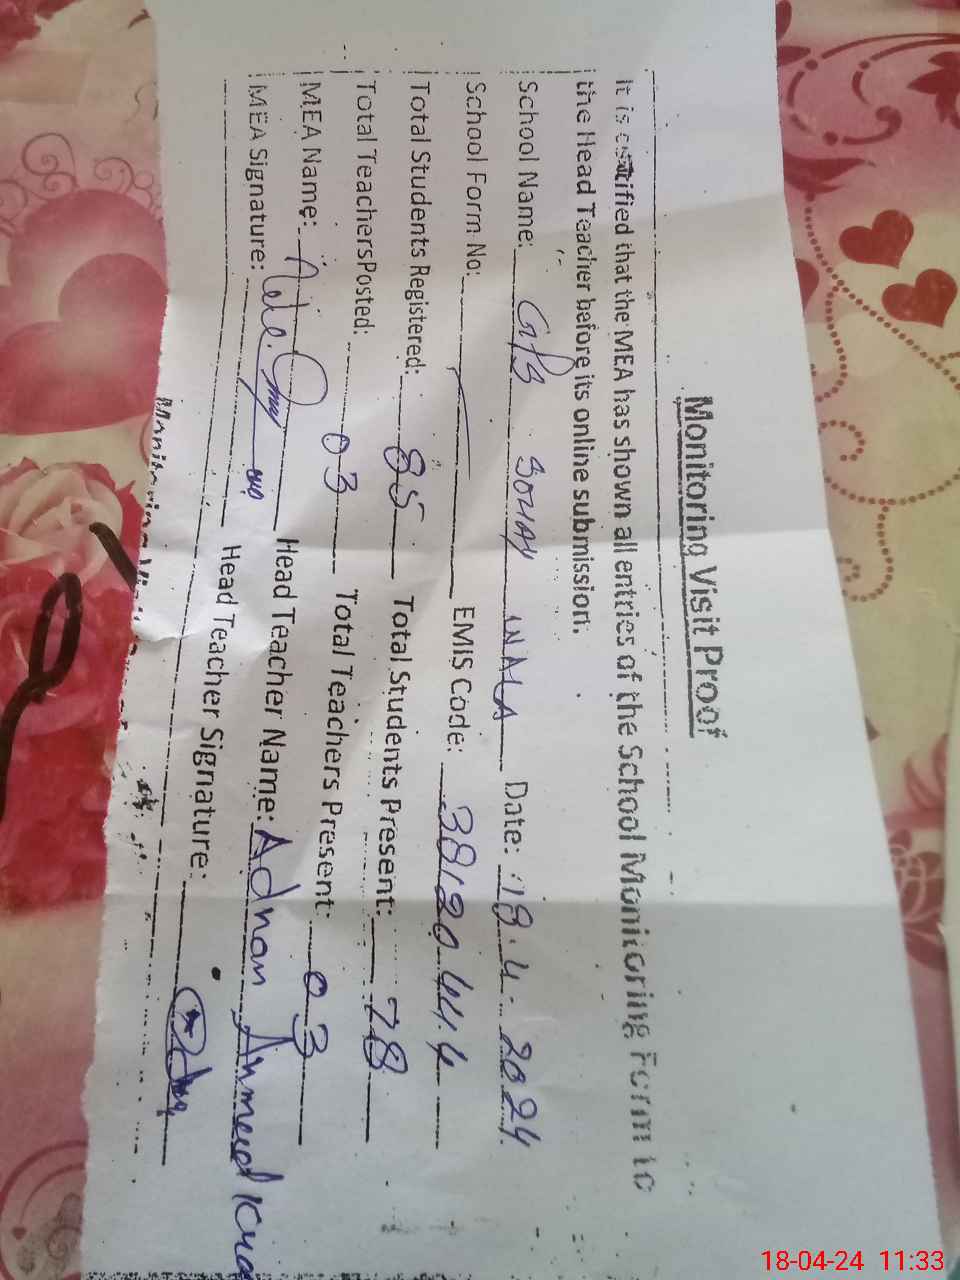 Monitoring Visit Proof
It is certified that the MEA has shown all entries of the School Monitoring Form to
the Head Teacher before its online submission.
School Name: GPS SOHAN WALA Date: 18.4.2024
School Form No: EMIS Code: 38120444
Total Students Registered: 85 Total Students Present: 78
Total TeachersPosted: 03 Total Teachers Present: 03
MEA Name: Head Teacher Name: Adnan Ahmed
MEA Signature: Head Teacher Signature:
Monitoring
18-04-24 11:33